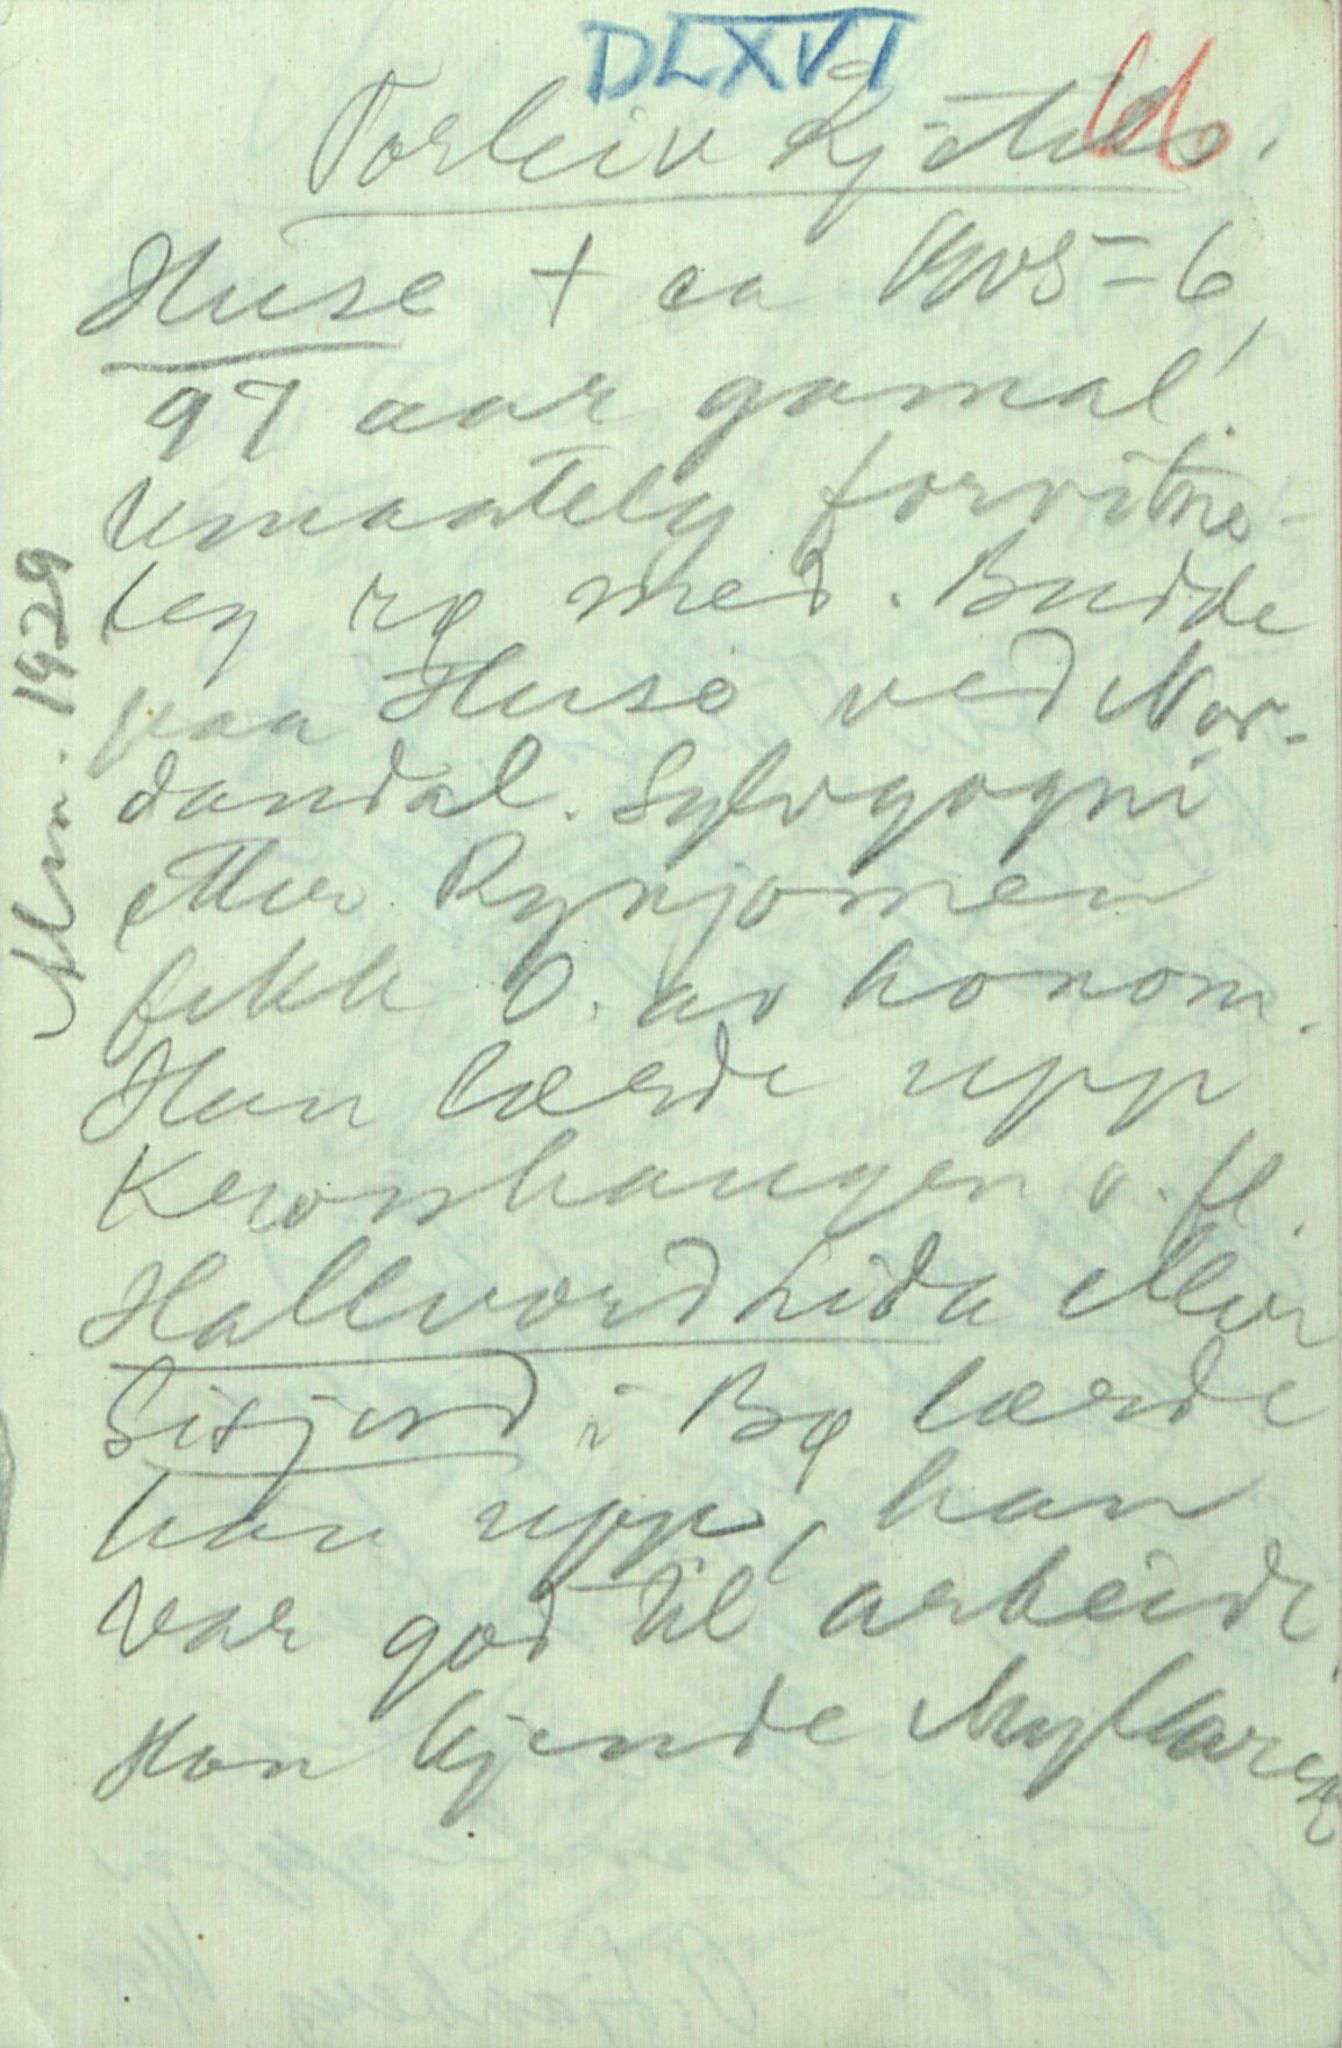 DLXVI
66
Torleiv Kjetils.
Huse + ca 1905-6,
97 aar gamal!
Umaateleg forvitne-
leg rø med. Budde
paa Huse ved Nor-
dandal. Sylvgogni
etter Rynjomen
fekk O. av honom.
Han lærde upp
Kevonhaugen o. fl.
Hallvard Lida eller
Sisjord i Bø lærde
han upp, han
var god til arbeide.
Han kjende Myllaren
1929